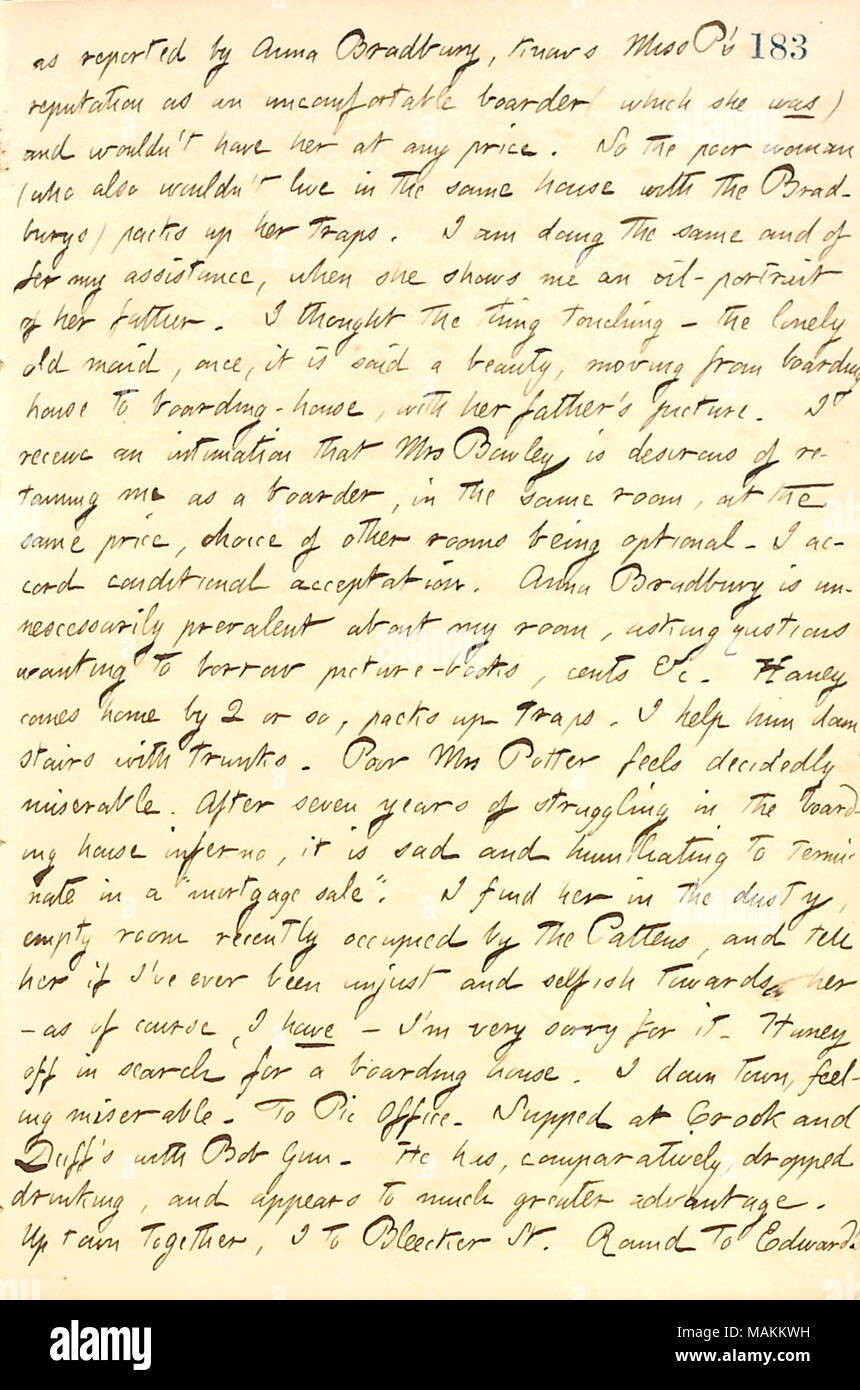 as reported by Anna Bradbury, knows Miss P's 183
reputation as an uncomfortable boarder (which she was)
and wouldn't have her at any price. So the poor woman
(who also wouldn't live in the same house with the Brad-
burys) packs up her traps. I am doing the same and of
fer my assistance, when she shows me an oil-portrait
of her father. I thought the thing touching — the lonely
old maid, once, it is said a beauty, moving from boarding
house to boarding-house, with her father's picture. I
receive an intimation that Mrs Bowley is desirous of re-
taining me as a boarder, in the same room, at the
same price, choice of other rooms being optional. I ac-
cord conditional acceptation. Anna Bradbury is un-
nescessarily prevalent about my room, asking qustions
wanting to borrow picture-books, cents &c. Haney
comes home by 2 or so, packs up traps. I help him down
stairs with trunks. Poor Mrs Potter feels decidedly
miserable. After seven years of struggling in the board-
ing house inferno, it is sad and humiliating to termi-
nate in a "mortgage sale". I find her in the dusty,
empty room recently occupied by the Pattens, and tell
her if I've ever been unjust and selfish towards her
— as of course, I have — I'm very sorry for it. Haney
off in search for a boarding house. I down town, feel-
ing miserable. To Pic Office. Supped at Crook and
Duff's with Bob Gun. He has, comparatively, dropped
drinking, and appears to much greater advantage.
Up town together, I to Bleecker St. Round to Edwards
alamy
Image ID: MAKKWH
www.alamy.com